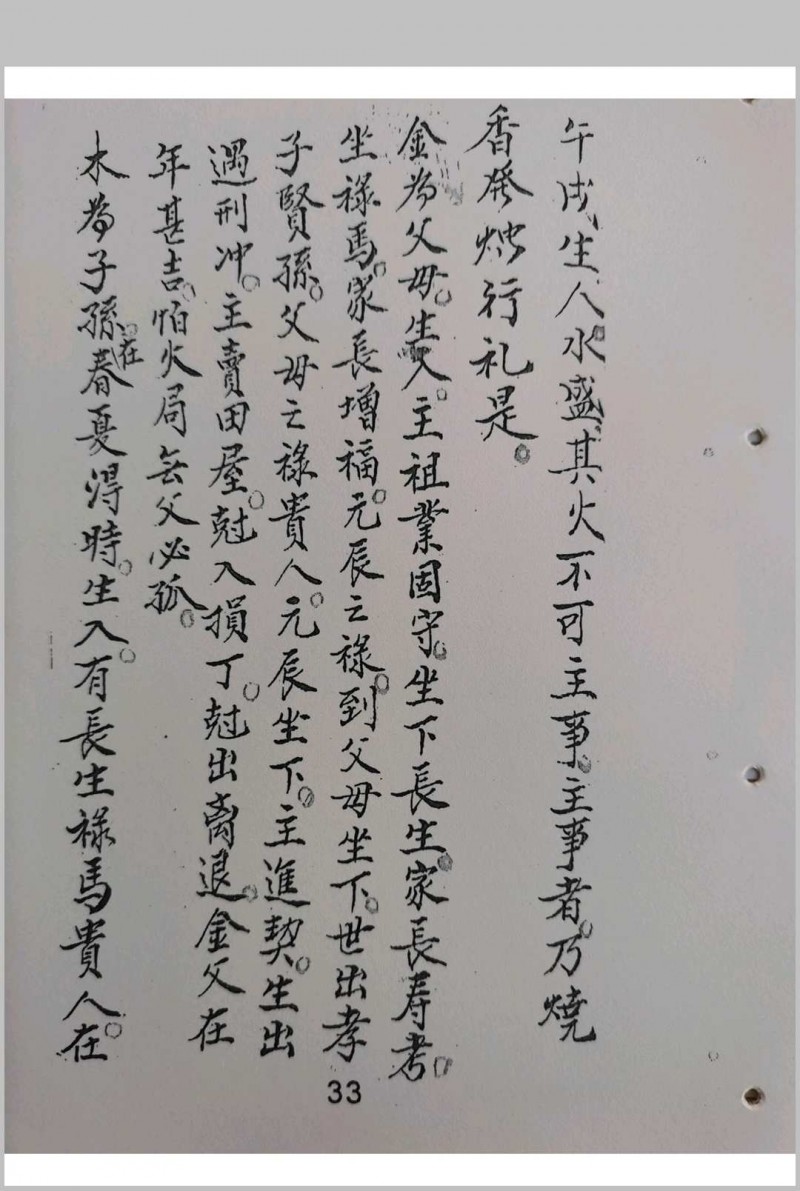 午戌生人。水盛其火不可主事。主事者。乃燒
香發燭行礼是。
金為父母。生入。主祖業固守。坐下長生。家長寿考。
坐祿馬。家長增福。元辰之祿。到父母坐下。世出孝
子賢孫。父母之祿貴人。元辰坐下。主進契。生出
遇刑冲。主賣田屋。尅入損丁。尅出离退。金父在
年甚吉。怕火局無父必孤。
木為子孫。在春夏得時。生入。有長生祿馬貴人在。
33